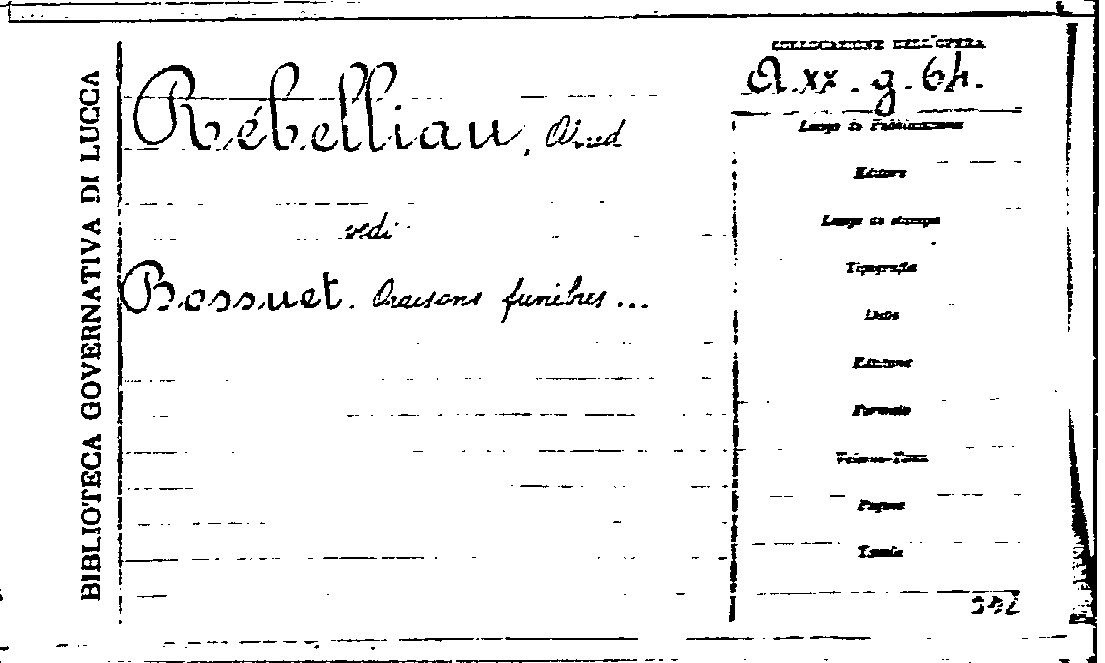 BIBLIOTECA GOVERNATIVA DI LUCCA
COLLOCAZIONE DELL'OPERA
A.xx.g.64.
Rébelliau,
vedi
Bossuet. Oraisons funèbres...
Luogo di Pubblicazione
Editore
Luogo di stampa
Tipografia
Data
Edizione
Formato
Volume-Tomo
Pagine
Tavole